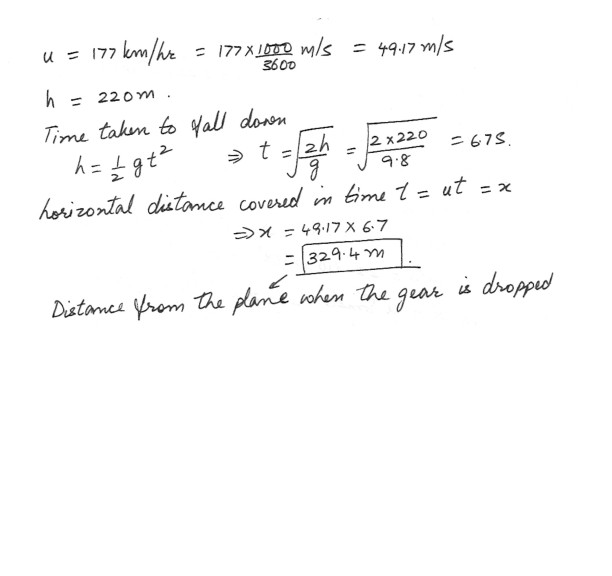 u = 177 km/hr = 177 × 1000/3600 m/s = 49.17 m/s
h = 220 m .
Time taken to fall down
h = 1/2 gt² ⇒ t = √(2h/g) = √(2×220/9.8) = 67S.
horizontal distance covered in time t = ut = x
⇒ x = 49.17 × 6.7
= 329.4 m .
Distance from the plane when the gear is dropped